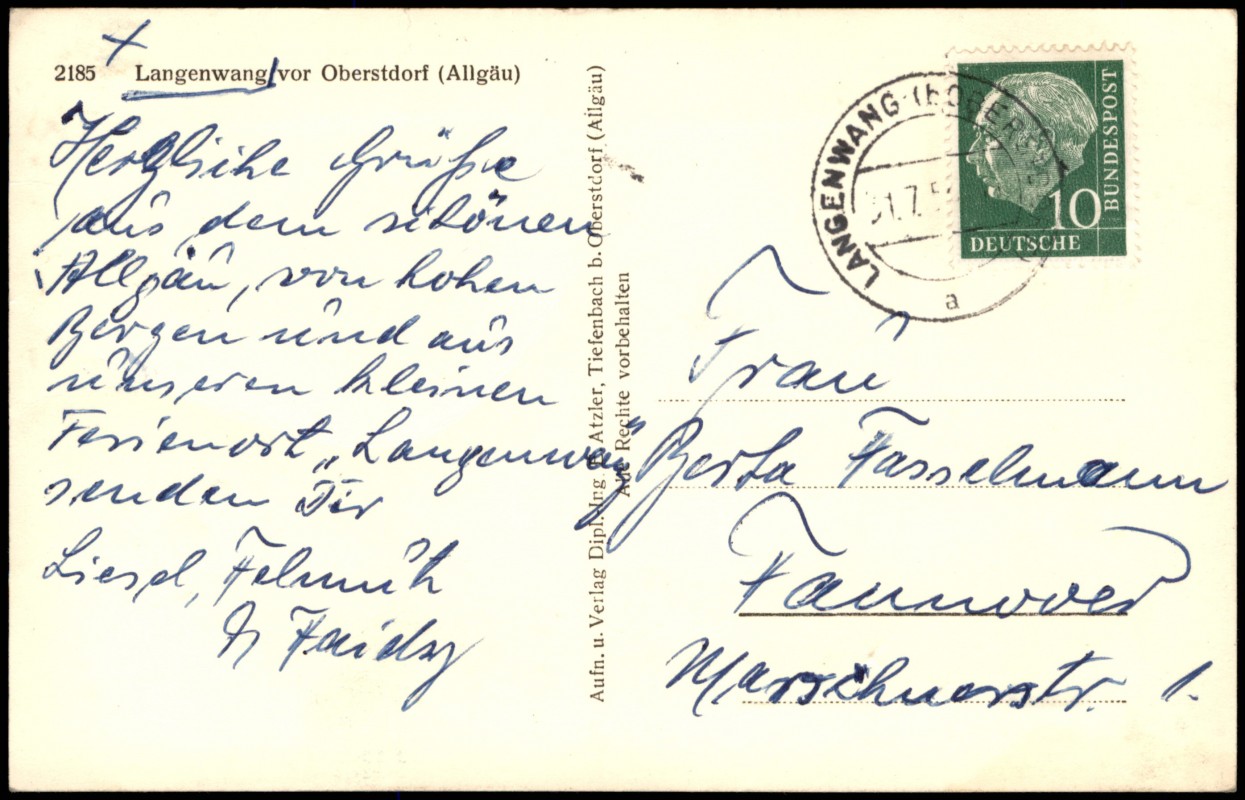 2185 Langenwang vor Oberstdorf (Allgäu)
Herzliche Grüße
aus dem schönen
Allgäu, von hohen
Bergen und aus
unseren kleinen
Ferienort „Langenwang“
senden Dir
Liesel, Helmuth
u Haidy
Aufn. u. Verlag Dipl. Ing. Atzler, Tiefenbach b. Oberstdorf (Allgäu)
Alle Rechte vorbehalten
LANGENWANG (b OBERS
31.7.5
a
10
BUNDESPOST
DEUTSCHE
Frau
Berta Hasselmann
Hannover
Marschnerstr. 1.